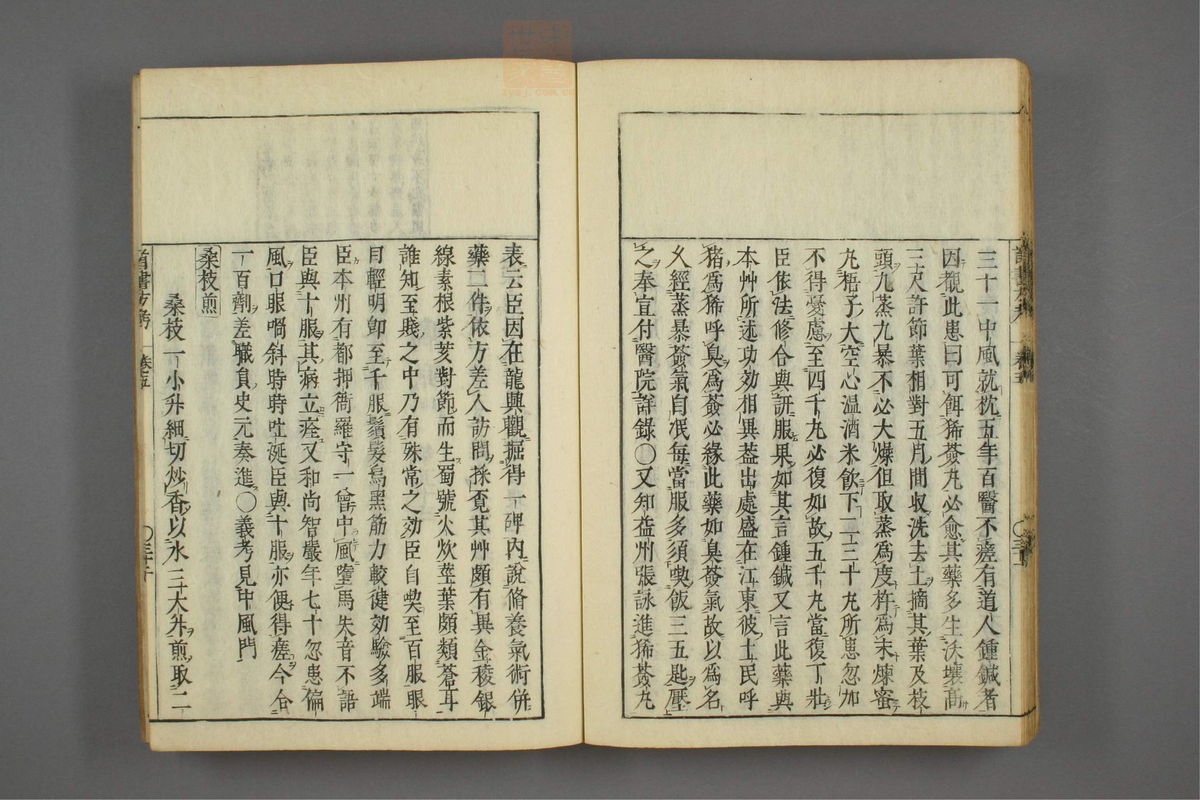 三十一中風就枕五年百醫不瘥有道人鍾鍼者
因觀此患曰可餌豨薟丸必愈其藥多生沃壤高
三尺許節葉相對五月間收洗去土摘其葉及枝
頭九蒸九暴不必大燥但取蒸爲度杵爲末煉蜜
丸梧子大空心温酒米飲下二三十丸所患忽加
不得憂慮至四千丸必復如故五千丸當復丁壯
臣依法修合與訮服果如其言鍾鍼又言此藥與
本艸所述功効相異葢出處盛在江東彼土民呼
猪爲豨呼臭爲薟必緣此藥如臭薟氣故以爲名
乂經蒸暴薟氣自泯每當服多須喫飯三五匙壓
之奉宣付醫院詳錄〇又知益州張詠進豨薟丸
表云臣因在龍興觀掘得一碑内說脩養氣術併
藥二件依方差人訪問採覓其艸頗有異金稜銀
線素根紫荄對節而生蜀號火炊莖葉頗類蒼耳
誰知至賤之中乃有殊常之効臣自喫至百服眼
目輕明卽至千服鬚髮烏黑筋力較健効驗多端
臣本州有都押衙羅守一曾中風墮馬失音不語
臣與十服其病立痊又和尚智嚴年七十忽患偏
風口眼喎斜時時吐涎臣與十服亦便得瘥今合
一百劑差職貟史元奏進〇義考見中風門
桑枝煎
桑枝一小升細切炒香以水三大升煎取二
卷五